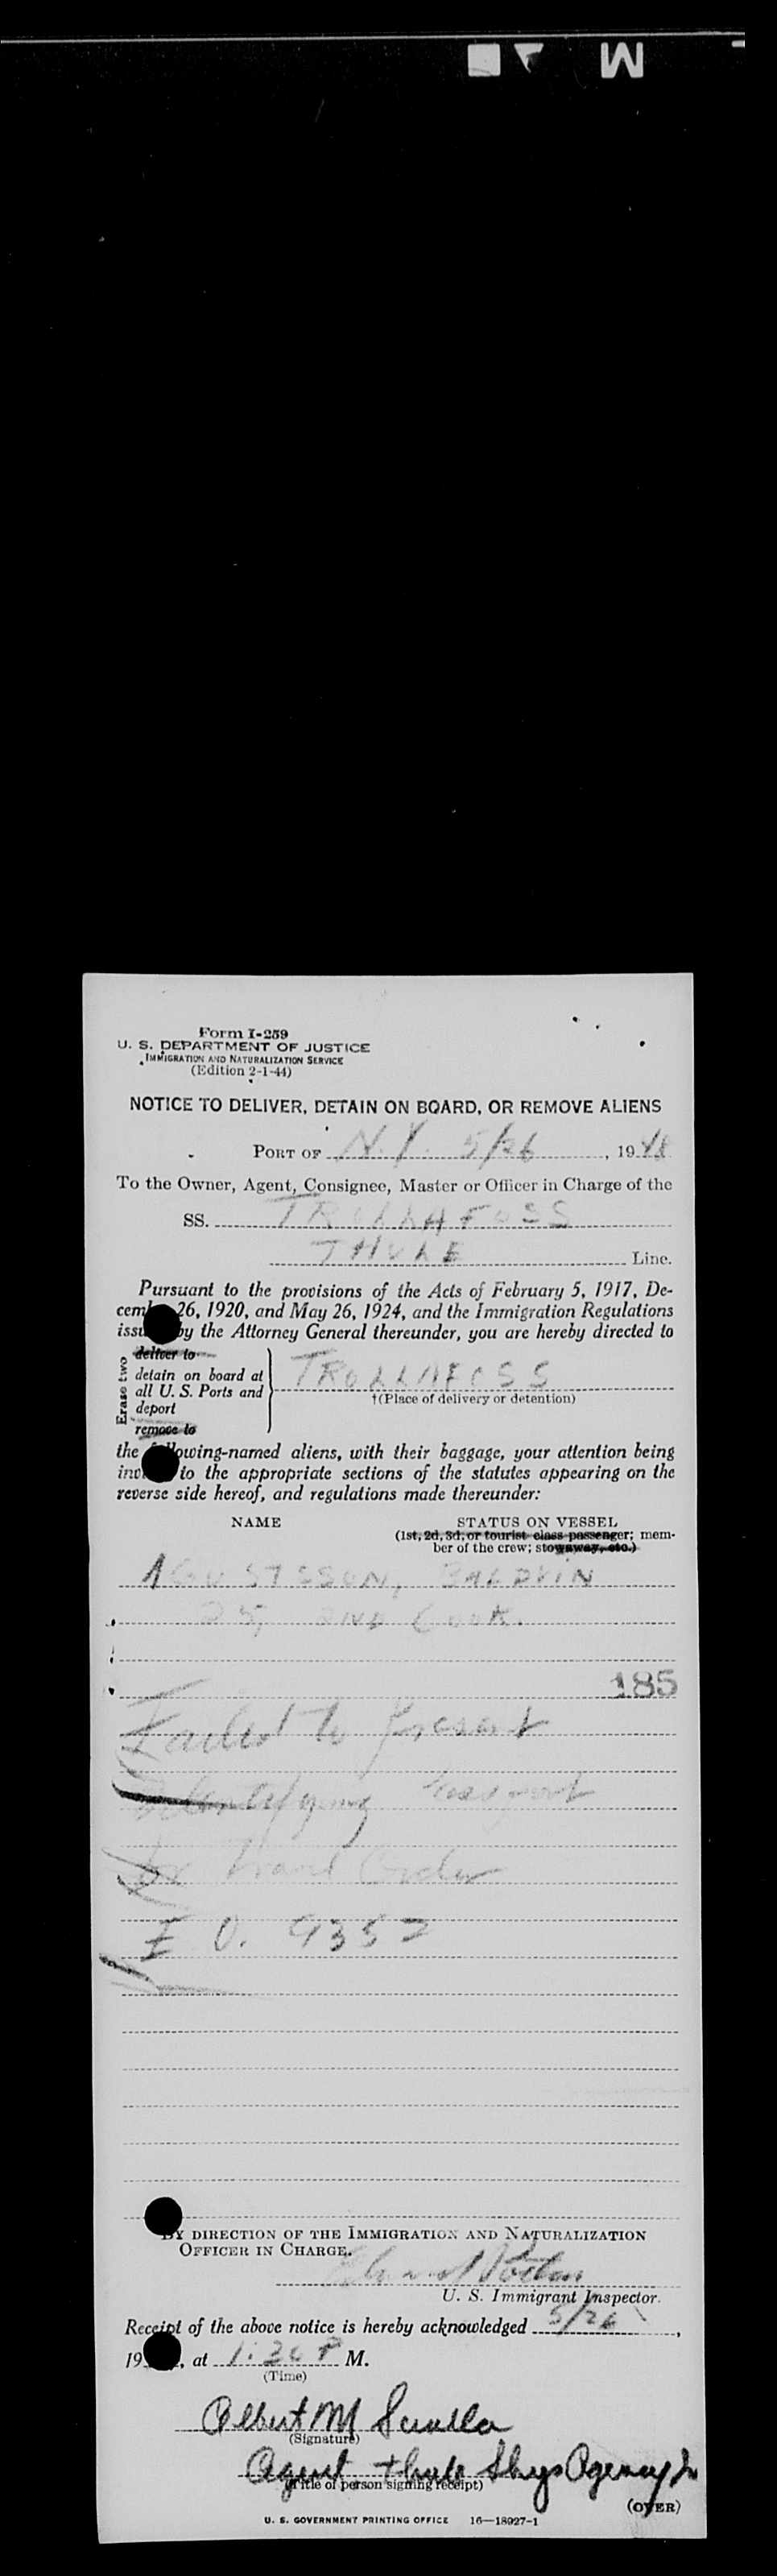 Form I-259
U. S. DEPARTMENT OF JUSTICE
IMMIGRATION AND NATURALIZATION SERVICE
(Edition 2-1-44)
NOTICE TO DELIVER, DETAIN ON BOARD, OR REMOVE ALIENS
PORT OF N.Y. 5/26, 1948
To the Owner, Agent, Consignee, Master or Officer in Charge of the
SS. TROLLAFOSS
THULE Line.
Pursuant to the provisions of the Acts of February 5, 1917, De-
cem 26, 1920, and May 26, 1924, and the Immigration Regulations
issu by the Attorney General thereunder, you are hereby directed to
Erase two
deliver to
detain on board at
all U. S. Ports and
deport
remove to
TROLLAFOSS
†(Place of delivery or detention)
the following-named aliens, with their baggage, your attention being
inv to the appropriate sections of the statutes appearing on the
reverse side hereof, and regulations made thereunder:
NAME STATUS ON VESSEL
(1st, 2d, 3d, or tourist class passenger; mem-
ber of the crew; stowaway, etc.)
AGUSTSSON, BALDVIN
25, 2ND Cook.
185
Failed to present
Identifying Passport
or Travel Order
E O. 9352
BY DIRECTION OF THE IMMIGRATION AND NATURALIZATION
OFFICER IN CHARGE.
U. S. Immigrant Inspector.
Receipt of the above notice is hereby acknowledged 5/26,
19 , at 1:20 P M.
(Time)
Albert M
(Signature)
Agent Thule Ships Agency
(Title of person signing receipt)
(OVER)
U. S. GOVERNMENT PRINTING OFFICE 16—18027-1